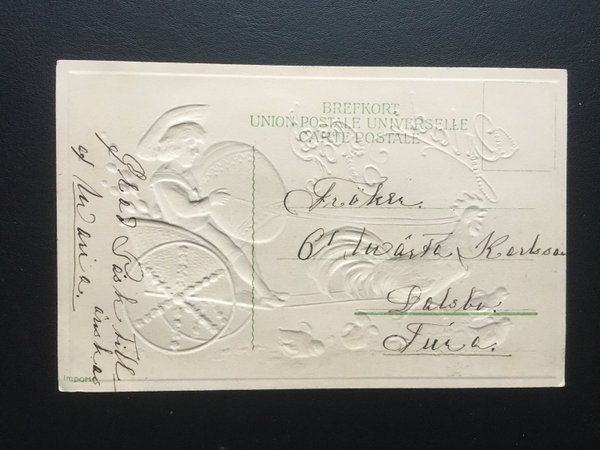 BREFKORT
UNION POSTALE UNIVERSELLE
CARTE POSTALE
Glad Påsk till
önskas
af Maria.
Fröken
Märta Karlsson
Dalsbo.
Tuna.
Import